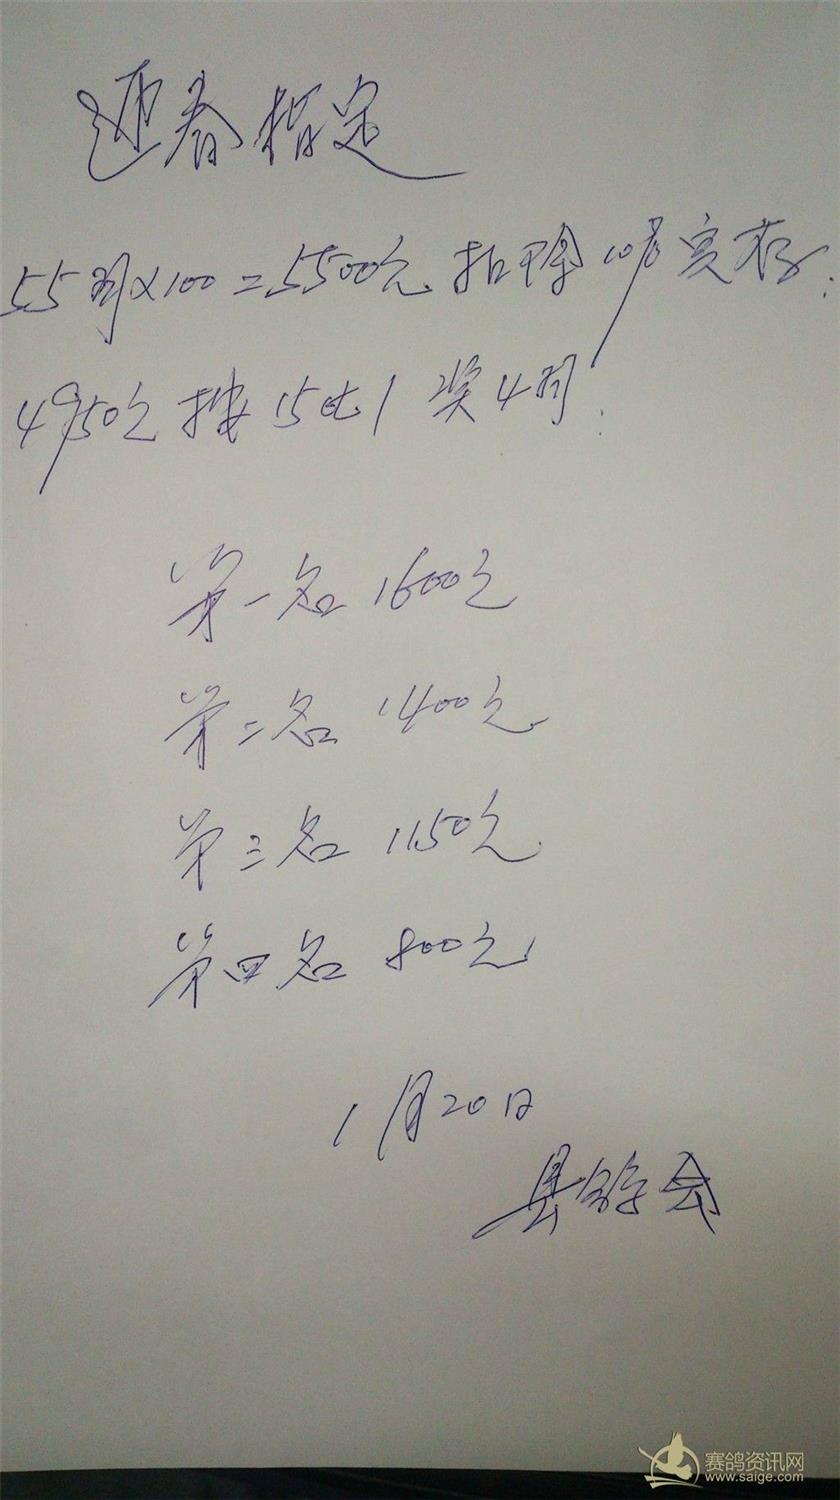 迎春指定
55羽×100=5500元.扣除10%实存:
4950元 按15比1 奖4羽:
第一名 1600元
第二名 1400元
第三名 1150元
第四名 800元
1月20日
县鸽会
赛鸽资讯网
www.saige.com